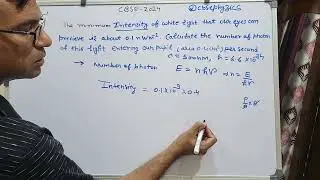 CBSE-2024 @cbsephysics
The minimum Intensity of white light that our eyes can
percieve is about 0.1 nWm⁻². Calculate the number of photon
of this light entering our pupil (area 0.4 cm²) per second
λ = 500nm, h = 6.6 × 10⁻³⁴
→ Number of photon E = nhν ⇒ n = E/hν
Intensity = 0.1×10⁻⁹×0.4